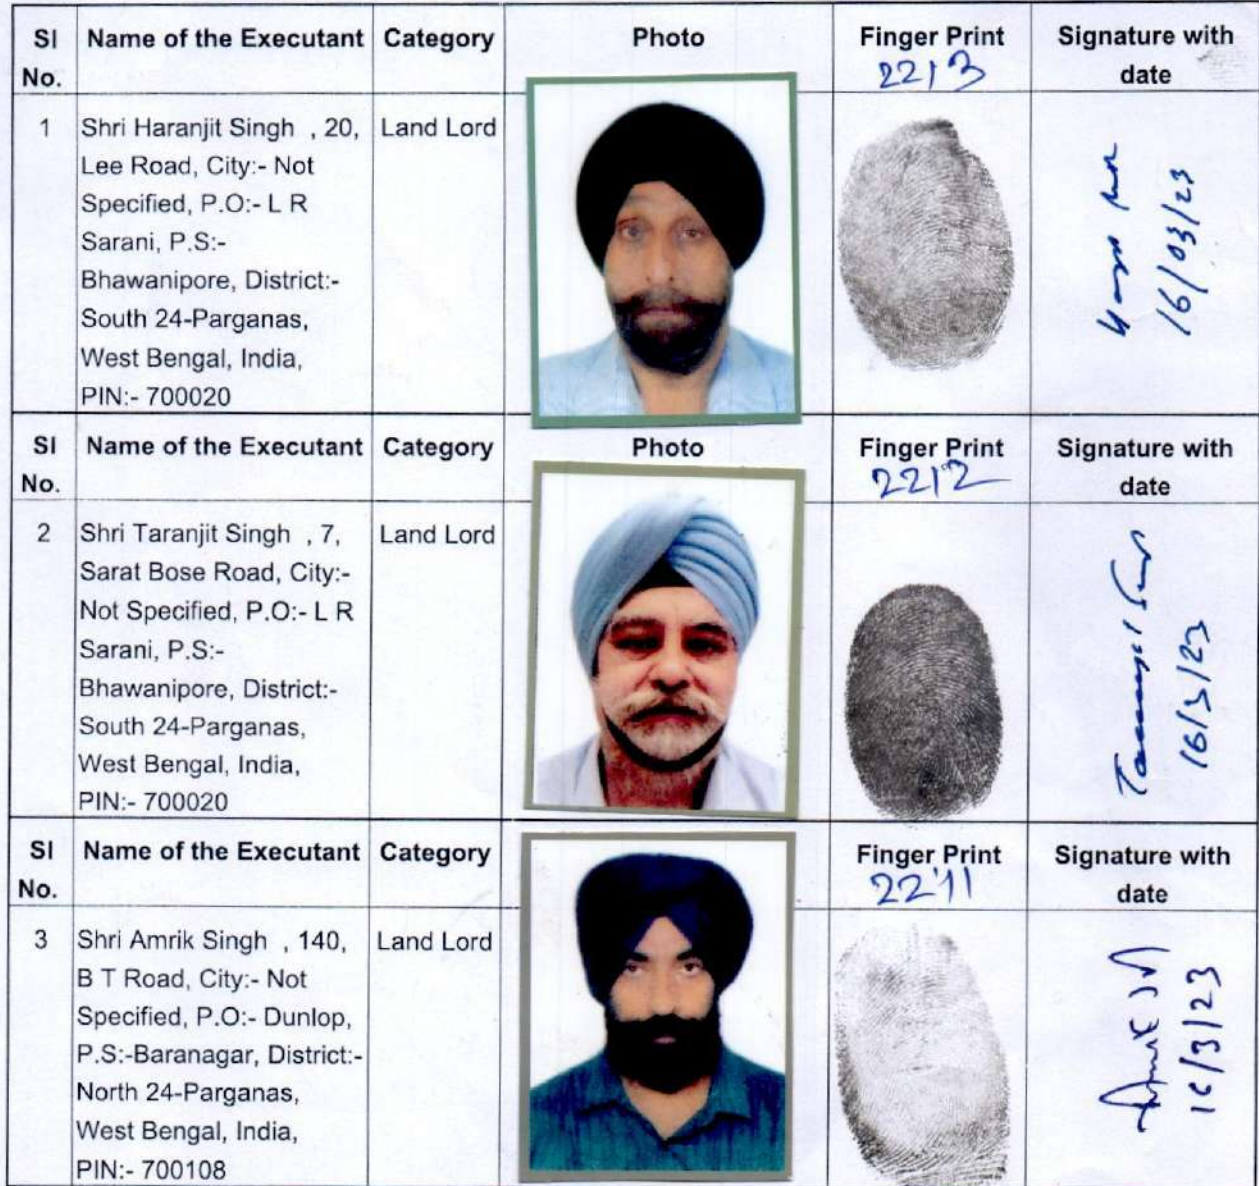 Sl No. Name of the Executant Category Photo Finger Print Signature with date
2213
1 Shri Haranjit Singh , 20, Land Lord
Lee Road, City:- Not
Specified, P.O:- L R
Sarani, P.S:-
Bhawanipore, District:-
South 24-Parganas,
West Bengal, India,
PIN:- 700020
16/03/23
Sl No. Name of the Executant Category Photo Finger Print Signature with date
2212
2 Shri Taranjit Singh , 7, Land Lord
Sarat Bose Road, City:-
Not Specified, P.O:- L R
Sarani, P.S:-
Bhawanipore, District:-
South 24-Parganas,
West Bengal, India,
PIN:- 700020
16/3/23
Sl No. Name of the Executant Category Finger Print Signature with date
2211
3 Shri Amrik Singh , 140, Land Lord
B T Road, City:- Not
Specified, P.O:- Dunlop,
P.S:-Baranagar, District:-
North 24-Parganas,
West Bengal, India,
PIN:- 700108
16/3/23